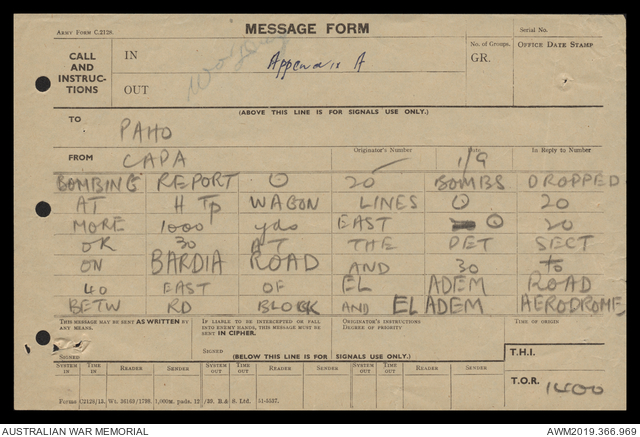 ARMY FORM C.2128.
MESSAGE FORM
Serial No.
CALL AND INSTRUCTIONS
IN
Appendix A
No. of Groups.
GR.
OFFICE DATE STAMP
OUT
(ABOVE THIS LINE IS FOR SIGNALS USE ONLY.)
TO
PAHO
FROM
CAPA
Originator's Number
Date
1/9
In Reply to Number
BOMBING REPORT ⊙ 20 BOMBS DROPPED
AT H Tp WAGON LINES ⊙ 20
MORE 1000 yds EAST ⊙ 20
OR 30 AT THE DET SECT
ON BARDIA ROAD AND 30 to
40 EAST OF EL ADEM ROAD
BETW RD BLOCK AND EL ADEM AERODROME
THIS MESSAGE MAY BE SENT AS WRITTEN BY ANY MEANS.
IF LIABLE TO BE INTERCEPTED OR FALL INTO ENEMY HANDS, THIS MESSAGE MUST BE SENT IN CIPHER.
ORIGINATOR'S INSTRUCTIONS
DEGREE OF PRIORITY
TIME OF ORIGIN
SIGNED
SIGNED
(BELOW THIS LINE IS FOR SIGNALS USE ONLY.)
T.H.I.
SYSTEM IN
TIME IN
READER
SENDER
SYSTEM OUT
TIME OUT
READER
SENDER
SYSTEM OUT
TIME OUT
READER
SENDER
T.O.R.
1400
AUSTRALIAN WAR MEMORIAL
AWM2019.366.969